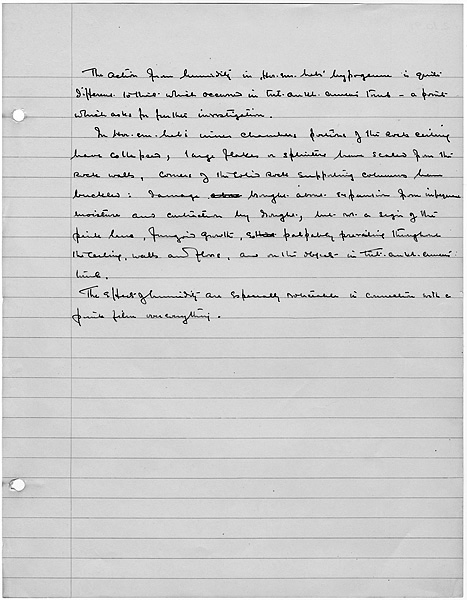 The action from humidity in Hor.em.heb's hypogeum is quite
different to this which occurred in Tut.ankh.amen's tomb – a point
which asks for further investigation.
In Hor.em.heb's inner chambers portions of the rock ceiling
have collapsed, large flakes or splinters have scaled from the
rock walls, corners of the solid rock supporting columns have
buckled: damage brought about expansion from
moisture and contraction by drought, but not a sign of the
pink , fungoid growth, so palpably prevailing throughout
the ceiling, walls and floor, and on the objects in Tut.ankh.amen's
tomb.
The effects of humidity are especially noticeable in connection with a
pink film over everything.